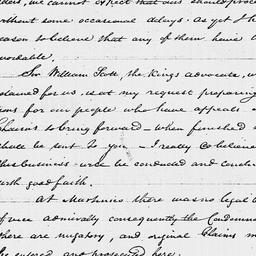 we cannot expect that our should
without some occasional delays. As yet I h
eason to believe that any of them have b
workable.
Sir William Scott, the Kings advocate, w
claimed for us, is at my request preparing
ions for our people who have appeals
to bring forward – when finished
shall be sent to you – I really believe
this business will be conducted and conclu
with good faith.
At there was no legal C
of vice admiralty consequently the Condemna
there are nugatory, and original Claims m
be entered and prosecuted here.